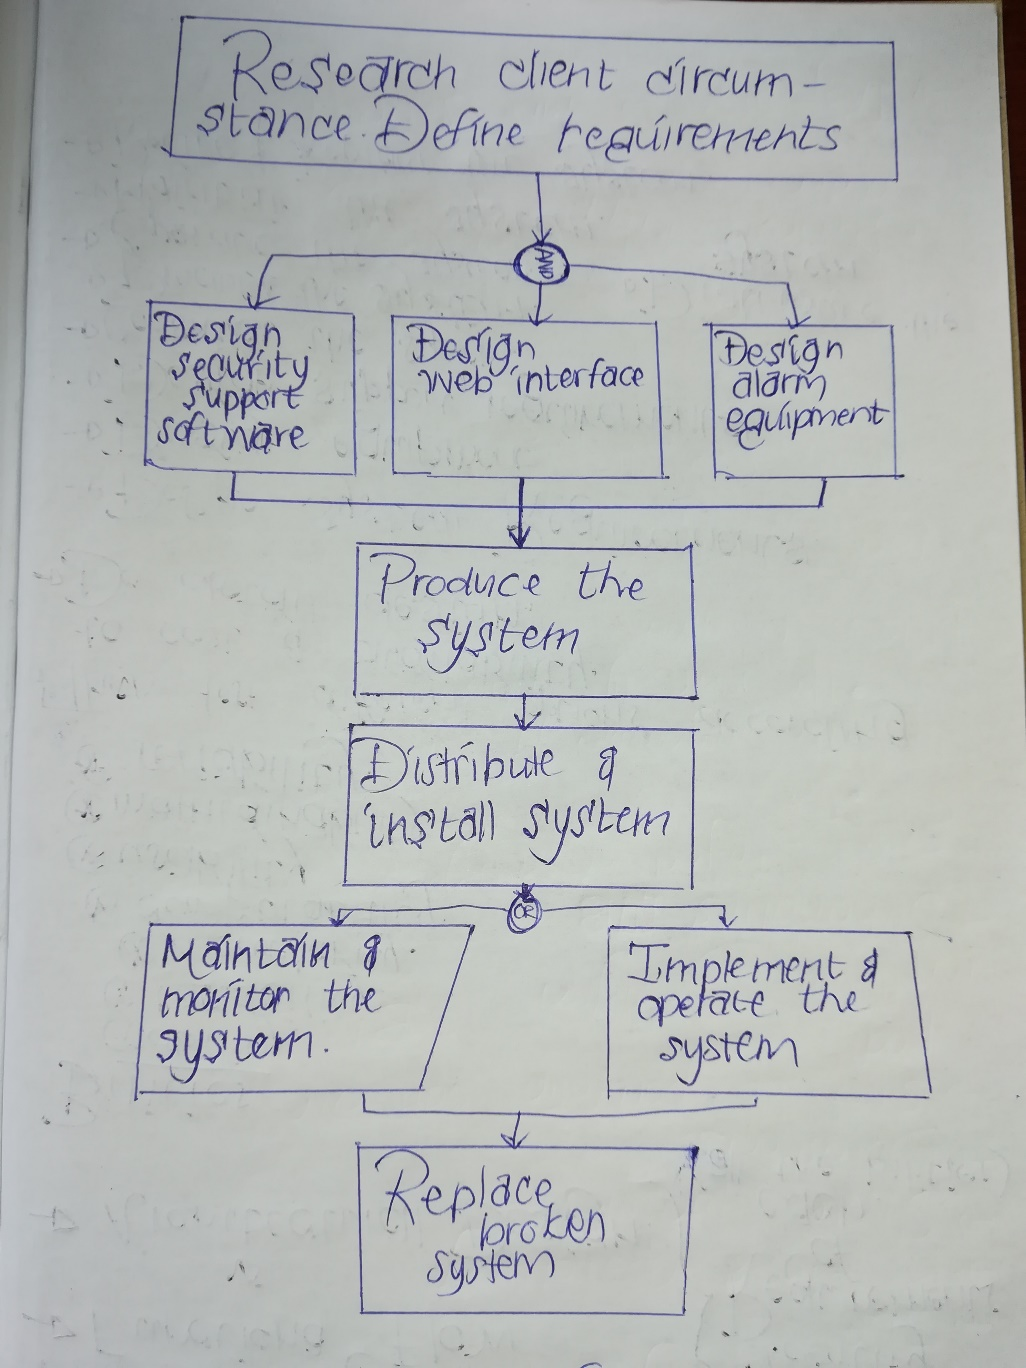 Research client circum-
stance. Define requirements
AND
Design
security
support
software
Design
web interface
Design
alarm
equipment
Produce the
system
Distribute &
install system
OR
Maintain &
monitor the
system.
Implement &
operate the
system
Replace
broken
system